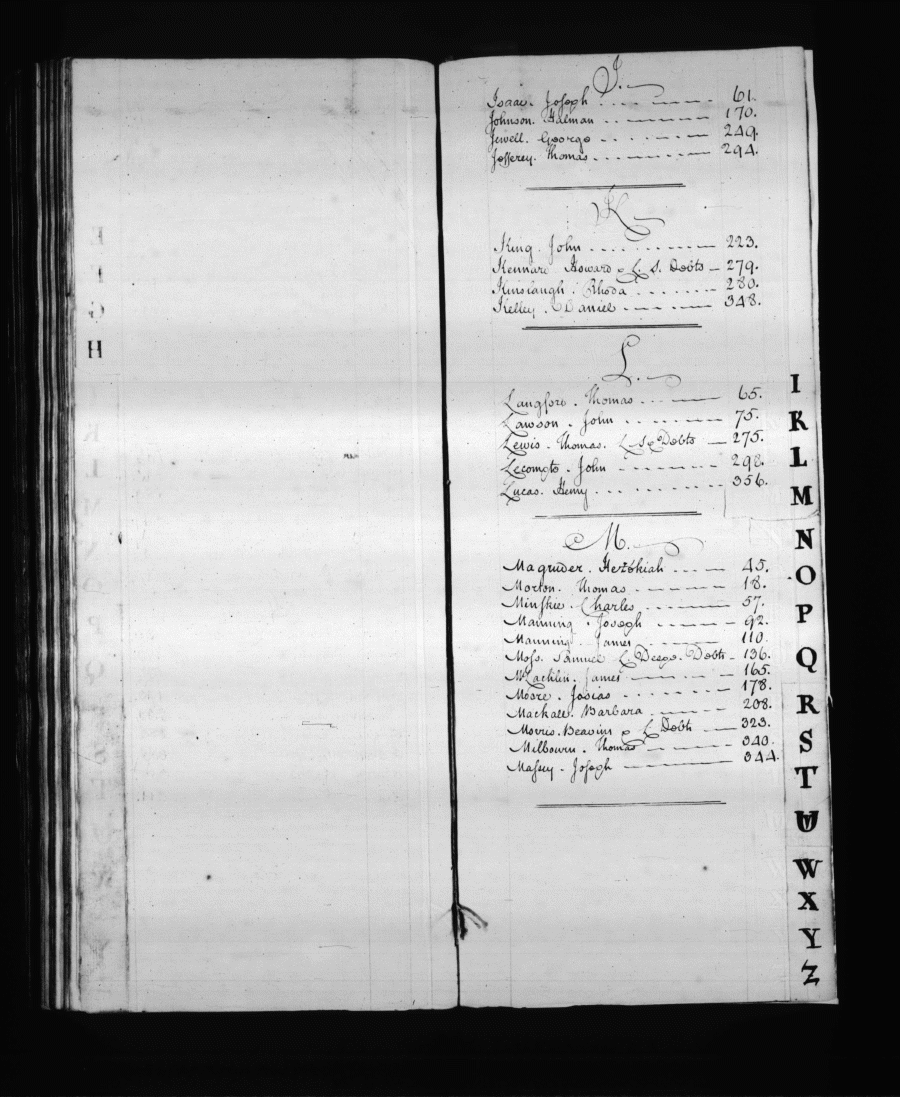 H
J.
Isaac. Joseph 61.
Johnson. Talman 170.
Jewell. George 249.
Jefferey. Thomas 294.
K
King. John 223.
Kennard. Howard L. S. Debts 279.
Rhoda 280.
Kelley. Daniel 348.
L.
Langford. Thomas 65.
Lawson. John 75.
Lewis. Thomas. L S Debts 275.
Lecompte. John 298.
Lucas. Henry 356.
M.
Magruder. Hezekiah 45.
Morton. Thomas 18.
Minskie. Charles 57.
Manning. Joseph 92.
Manning. James 110.
Moss. Samuel L Debts 136.
McLachlin. James 165.
Moore. Josias 178.
Mackall. Barbara 208.
Morris. L Debts 323.
Milbourn. Thomas 340.
Massey. Joseph 344.
I
K
L
M
N
O
P
Q
R
S
T
W
X
Y
Z